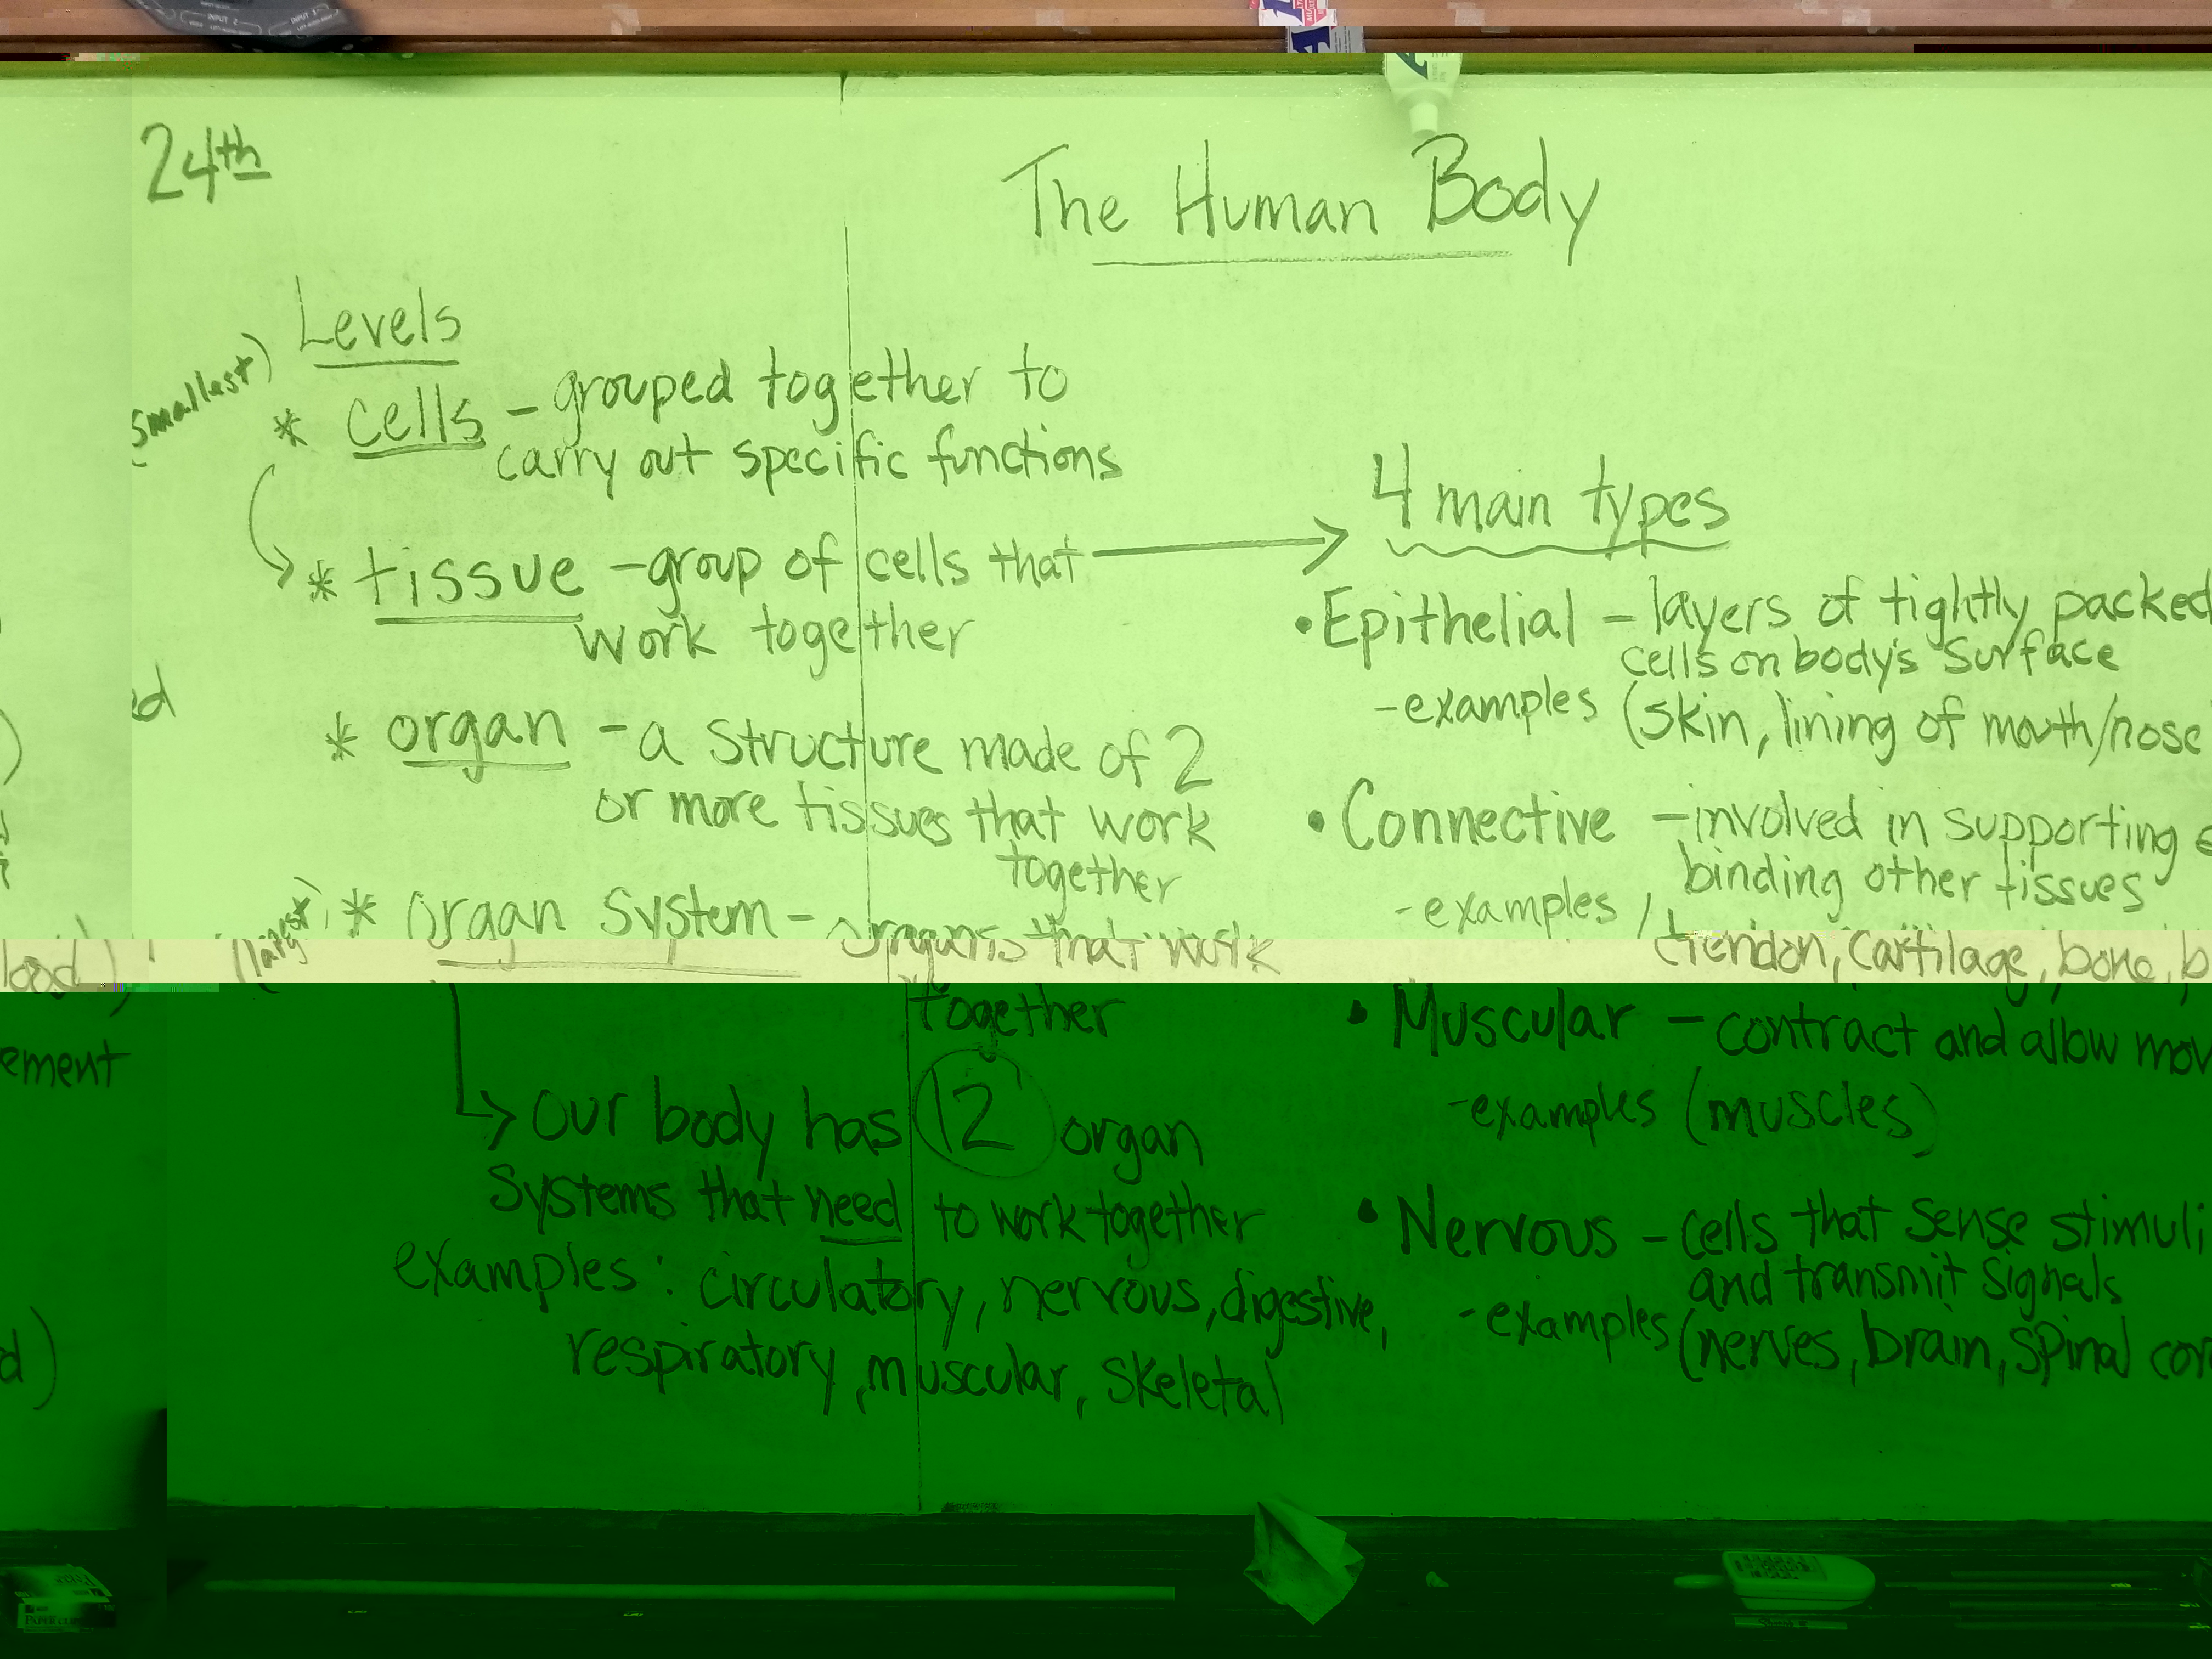 INPUT 2
INPUT 3
24th
The Human Body
Levels
smallest)
* cells - grouped together to
carry out specific functions
* tissue - group of cells that
work together
* organ - a structure made of 2
or more tissues that work
together
(largest) * organ system - organs that work
together
Our body has 12 organ
systems that need to work together
examples: circulatory, nervous, digestive,
respiratory, muscular, skeletal
4 main types
• Epithelial - layers of tightly packed
cells on body's surface
- examples (skin, lining of mouth/nose
• Connective - involved in supporting
binding other tissues
- examples (tendon, cartilage, bone, b
• Muscular - contract and allow mov
- examples (muscles)
• Nervous - cells that sense stimuli
and transmit signals
- examples (nerves, brain, spinal cor
ed
lood)
ement
d)